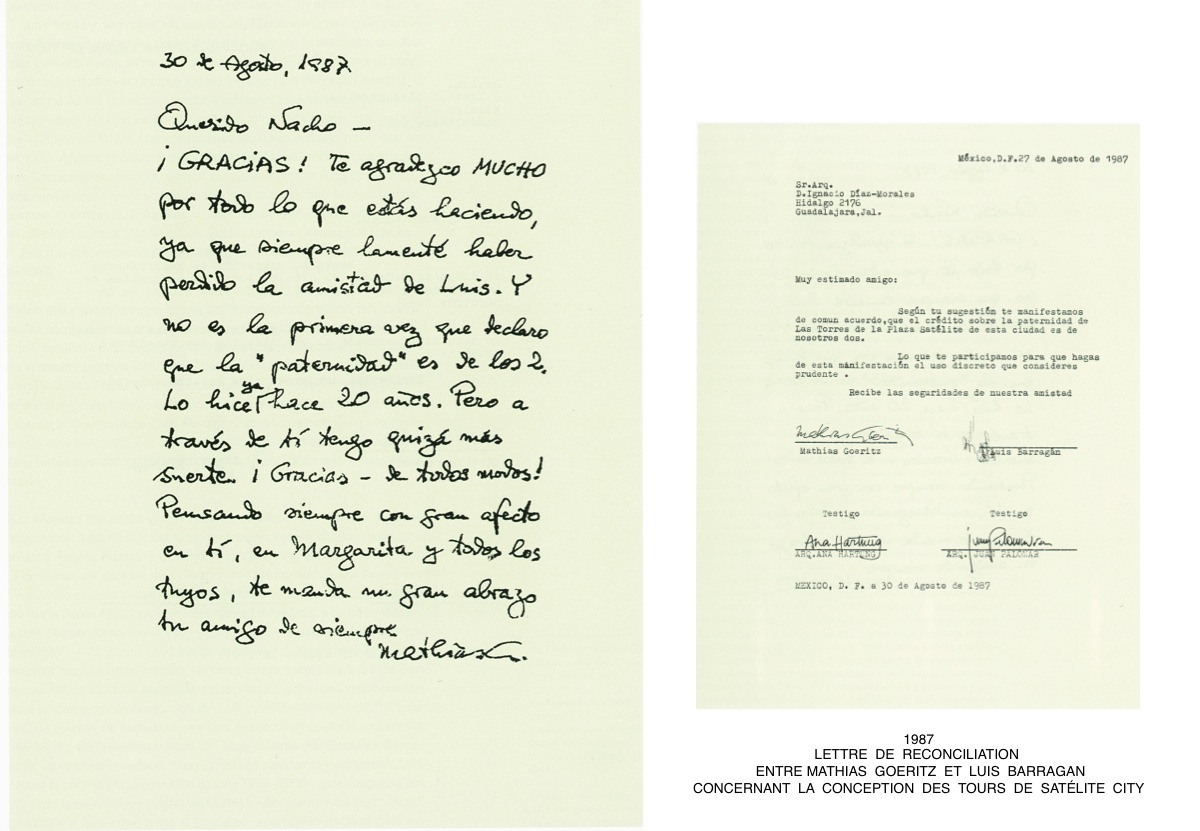 30 de Agosto, 1987
Querido Nacho —
¡GRACiAS! Te agradezco MUCHO
por todo lo que estás haciendo,
ya que siempre lamenté haber
perdido la amistad de Luis. Y
no es la primera vez que declaro
que la "paternidad" es de los 2.
Lo hice ya hace 20 años. Pero a
través de tí tengo quizá más
suerte. ¡Gracias – de todos modos!
Pensando siempre con gran afecto
en tí, en Margarita y todos los
tuyos, te manda un gran abrazo
tu amigo de siempre
Mathias G.
México,D.F.27 de Agosto de 1987
Sr.Arq.
D.Ignacio Díaz-Morales
Hidalgo 2176
Guadalajara,Jal.
Muy estimado amigo:
Según tu sugestión te manifestamos
de comun acuerdo,que el crédito sobre la paternidad de
Las Torres de la Plaza Satélite de esta ciudad es de
nosotros dos.
Lo que te participamos para que hagas
de esta manifestación el uso discreto que consideres
prudente .
Recibe las seguridades de nuestra amistad
Mathias Goeritz
Mathias Goeritz Luis Barragán
Testigo Testigo
Ana Hartung Juan Palomar
ARQ.ANA HARTUNG ARQ. JUAN PALOMAR
MEXICO, D. F. a 30 de Agosto de 1987
1987
LETTRE DE RECONCILIATION
ENTRE MATHIAS GOERITZ ET LUIS BARRAGAN
CONCERNANT LA CONCEPTION DES TOURS DE SATÉLITE CITY